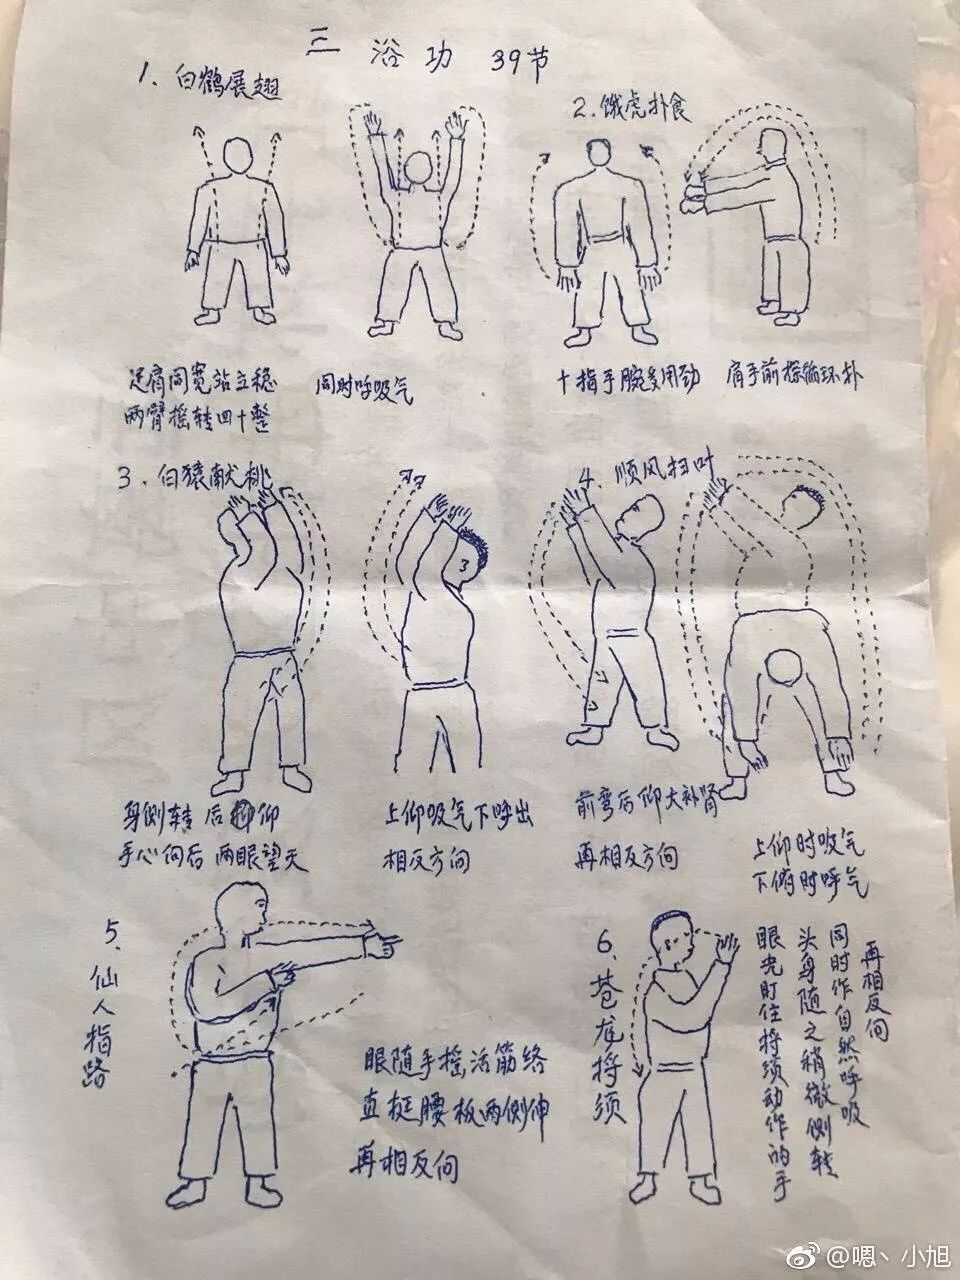 三浴功 39节
1、白鹤展翅
2、饿虎扑食
足肩同宽站立稳
两臂摇转四十整
同时呼吸气
十指手腕多用劲
肩手前探循环扑
3、白猿献桃
4、顺风扫叶
身侧转后仰
手心向后两眼望天
上仰吸气下呼出
相反方向
前弯后仰大补肾
再相反方向
上仰时吸气
下俯时呼气
5、仙人指路
眼随手摇活筋络
直挺腰板两侧伸
再相反向
6、苍龙捋须
眼光盯住捋须动作的手
头身随之稍微侧转
同时作自然呼吸
再相反向
@嗯丶小旭